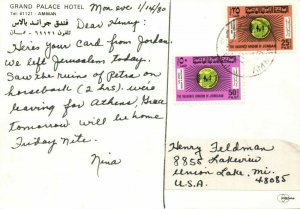 GRAND PALACE HOTEL
Tel 61121 - AMMAN
فندق جراند بالاس
تلفون ٦١١٢١ - عمان
Mon eve 1/14/80
Dear Henry:
Here's your card from Jordan.
We left Jerusalem today.
Saw the ruins of Petra on
horseback (2 hrs). We're
leaving for Athens, Greece
tomorrow will be home
Friday Nite.
Nina
THE HASHEMITE KINGDOM OF JORDAN
THE HASHEMITE KINGDOM OF JORDAN
Henry Feldman
8855 Lakeview
Union Lake, Mi.
48085
U.S.A.